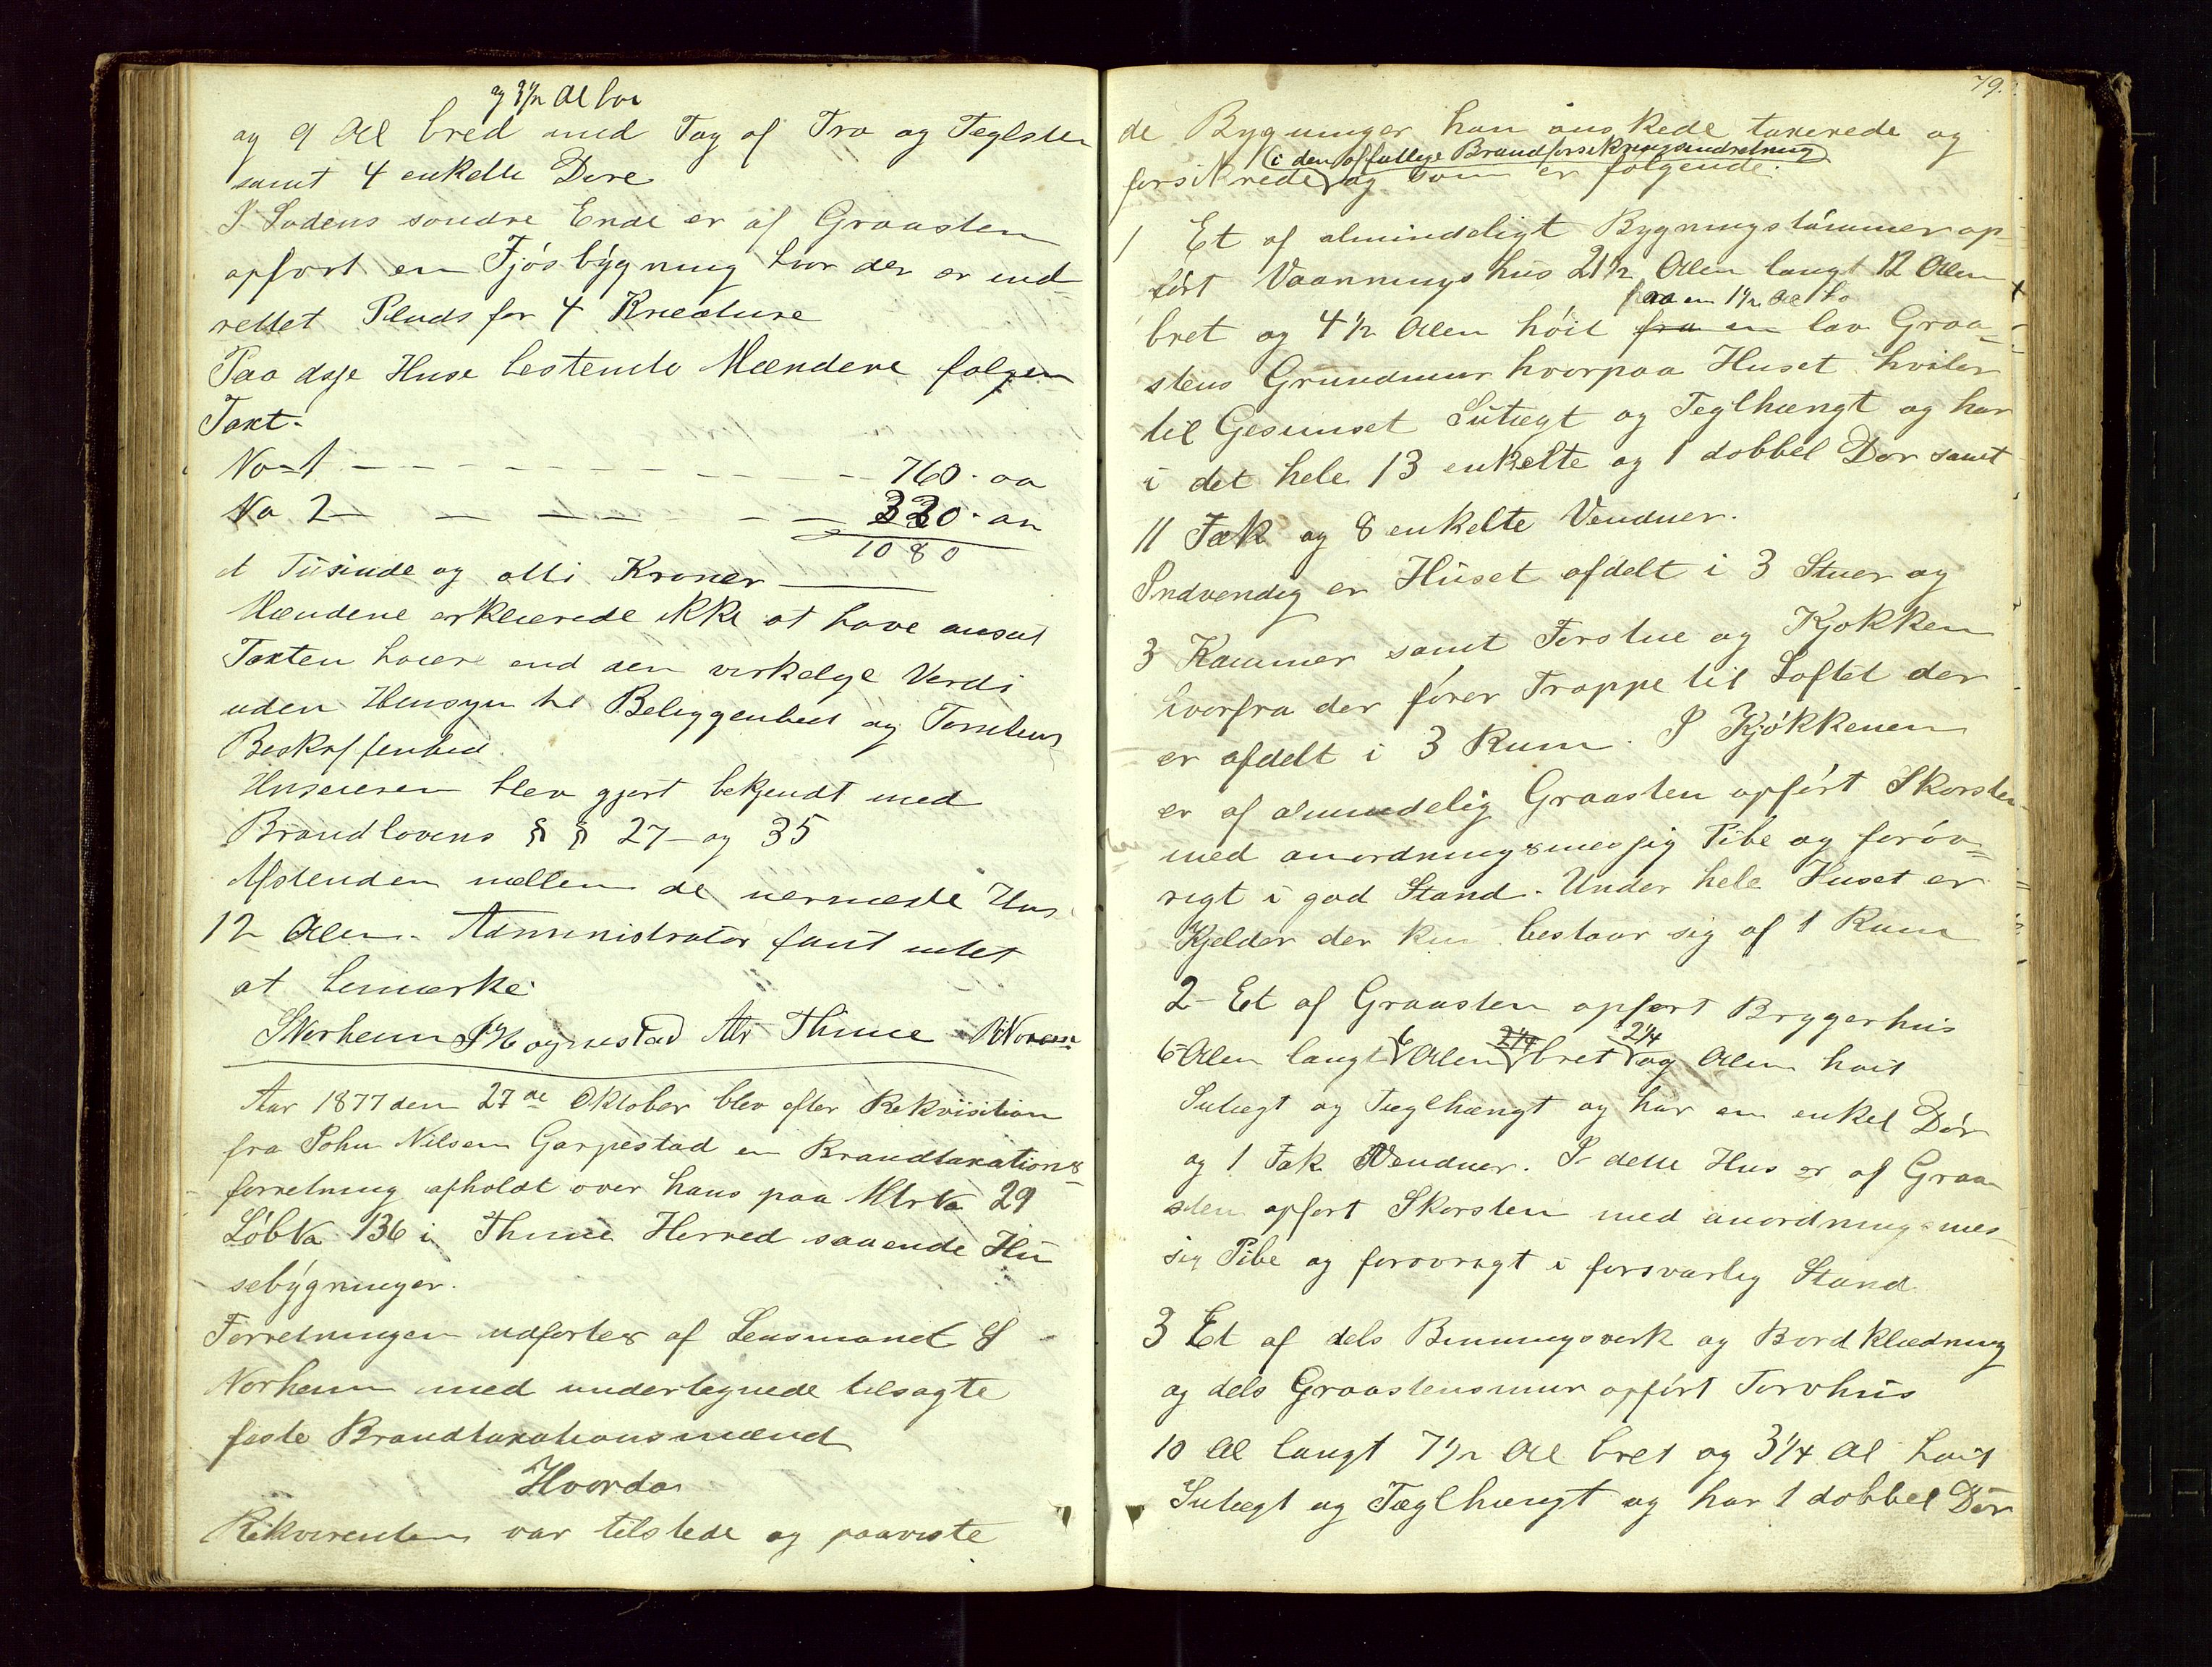 og 3½ Al hoi
og 9 Al bred med Tag af Træ og Teglsten
samt 4 enkelte Døre
I Ladens søndre Ende er af Graasten
opført en Fjósbygning hvor der er ind-
rettet Plads for 4 Kreature
Paa disse Huse bestemte Mændene følgen
Taxt:
No 1 — 760. oo
No 2 — 320. oo
1080
et Tusinde og otti Kroner
Mændene erklærede ikke at have ansat
Taxten høiere end den virkelige Verdi
uden Hensyn til Beliggenhed og Tomtens
Beskaffenhed.
Huseieren blev gjort bekjendt med
Brandlovens § § 27 og 35
Afstanden mellem de nermeste Hus
12 Alen. Administrator fant intet
at bemærke.
Norheim Aognestad Thime
Aar 1877 den 27de Oktober blev efter Rekvisition
fra John Nilsen Garpestad en Brandtaxations
forretning afholdt over hans paa Mtr No 29
Løb No 136 i Thime Herred staaende Hu
sebygninger.
Forretningen udførtes af Lensmand S
Norheim med undertegnede tilsagte
faste Brandtaxationsmænd
Hvorda
Rekvirenten var tilstede og paaviste
79.
de Bygninger han ønskede taxerede og
(i den offentlige Brandforsikringsindretning)
forsikrede og som er følgende:
1 Et af almindeligt Bygningstømmer op-
ført Vaaningshus 21½ Alen langt 12 Alen
fra en 1½ Al ho
bret og 4½ Alen høit fra en lav Graa-
stens Grundmur hvorpaa Huset hviler
til Gesimset Sutægt og Teglhængt og har
i det hele 13 enkelte og 1 dobbel Dør samt
11 Fak og 8 enkelte Vinduer.
Indvendig er Huset afdelt i 3 Stuer og
3 Kammer samt Forstue og Kjøkken
hvorfra der fører Trappe til Loftet der
er afdelt i 3 Rum. I Kjøkkenen
er af almindelig Graasten opført Skorsten
med anordningsmessig Pibe og forøv-
rigt i god Stand. Under hele Huset er
Kjelder der kun bestaar sig af 1 Rum
2 Et af Graasten opført Bryggerhus
6 2¼ 2¼
6 Alen langt Alen bret og Alen høit
Sutægt og Tæglhængt og har en enkel Dør
og 1 Fak Venduer. I dette Hus er af Graa
sten opført Skorsten med anordningsmes
sig Pibe og forøvrigt i forsvarlig Stand
3 Et af dels Binningsverk og Bordklædning
og dels Graastensmur opført Torvhus
10 Al langt 7½ Al bret og 3¼ Al høit
Sutægt og Tæglhængt og har 1 dobbel Dør